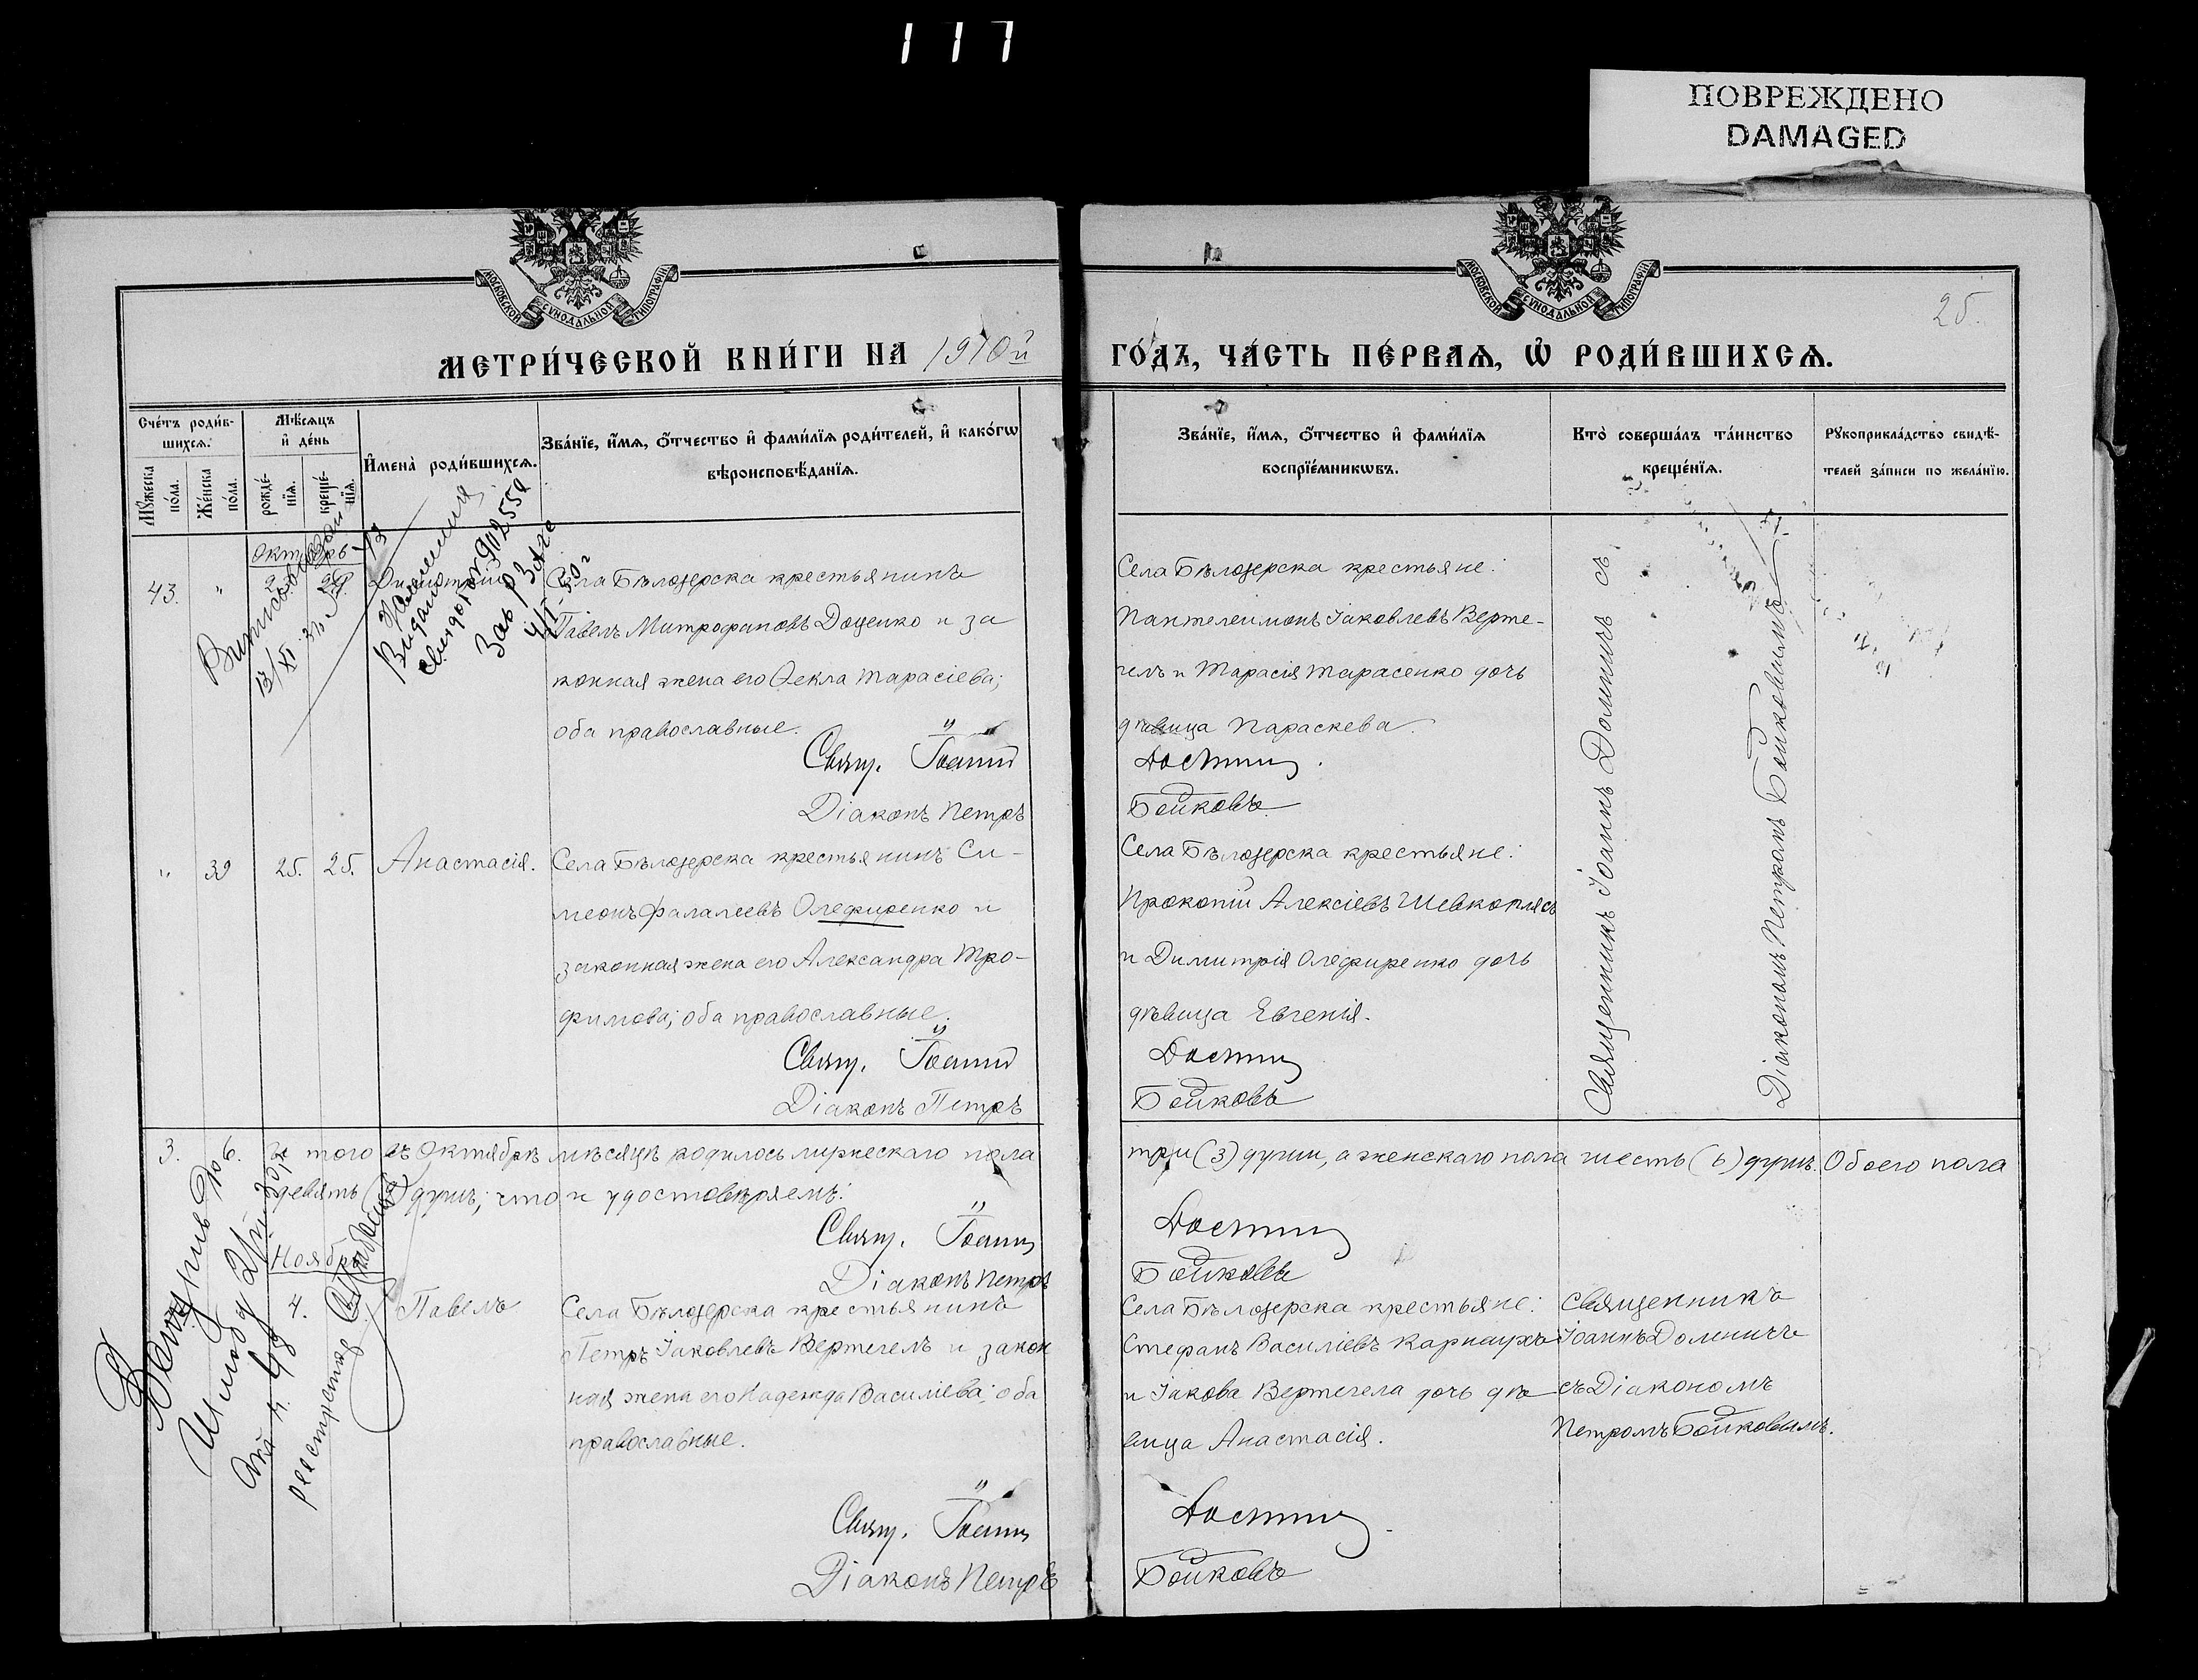 117
ПОВРЕЖДЕНО
DAMAGED
МОСКОВСКОЙ СѴНОДАЛЬНОЙ ТИПОГРАФІИ
МОСКОВСКОЙ СѴНОДАЛЬНОЙ ТИПОГРАФІИ
25.
МЕТРИ́ЧЕСКОЙ КНИ́ГИ НА 1910й
ГО́ДЪ, ЧА́СТЬ ПЕ́РВАѦ, Ѡ҆ РОДИ́ВШИХСѦ.
Сче́тъ роди́в-
шихсѧ.
Мꙋ́жеска по́ла.
Же́нска по́ла.
Мѣ́сѧцъ
и҆ де́нь
рожде́-
нїѧ.
креще́-
нїѧ.
И҆мена̀ роди́вшихсѧ.
Зва́нїе, и҆́мѧ, ѻ҆́тчество и҆ фами́лїѧ роди́телей, и҆ како́гѡ
вѣроисповѣ́данїѧ.
Зва́нїе, и҆́мѧ, ѻ҆́тчество и҆ фами́лїѧ
воспрїе́мникѡвъ.
Кто̀ соверша́лъ та́инство
креще́нїѧ.
Рꙋкоприкла́дство свидѣ́-
телей за́писи по жела́нїю.
Октябрь
43. "
Димитрій
Села Бѣлозерска крестьянинъ
Павелъ Митрофановъ Доценко и за
конная жена его Ѳекла Тарасіева;
оба православные.
Свящ. Іоаннъ
Діаконъ Петръ
Села Бѣлозерска крестьяне:
Пантелеимонъ Іаковлевъ Верте-
гелъ и Тарасія Тарасенко дочь
дѣвица Параскева.
Бойковъ.
Священникъ Іоаннъ Доминичъ съ
Діакономъ Петромъ Бойковымъ
" 39 25. 25. Анастасія.
Села Бѣлозерска крестьянинъ Си-
меонъ Фалалеевъ Олефиренко и
законная жена его Александра Тро-
фимова; оба православные.
Свящ. Іоаннъ
Діаконъ Петръ
Села Бѣлозерска крестьяне:
Прокопій Алексіевъ Шевкоплясъ
и Димитрія Олефиренко дочь
дѣвица Евгенія.
Бойковъ
3. 6. того въ Октябрѣ мѣсяцѣ родилось мужескаго пола
три (3) души, а женскаго пола шесть (6) душъ. Обоего пола
девять (9) душъ; что и удостовѣряемъ:
Свящ. Іоаннъ
Діаконъ Петръ
Бойковъ
Ноябрь
4. Павелъ
Села Бѣлозерска крестьянинъ
Петръ Іаковлевъ Вертегелъ и закон
ная жена его Надежда Василіева; оба
православные.
Свящ. Іоаннъ
Діаконъ Петръ
Села Бѣлозерска крестьяне:
Стефанъ Василіевъ Карнаухъ
и Іакова Вертегела дочь дѣ
вица Анастасія.
Бойковъ
Священникъ
Іоаннъ Доминичъ
съ Діакономъ
Петромъ Бойковымъ.